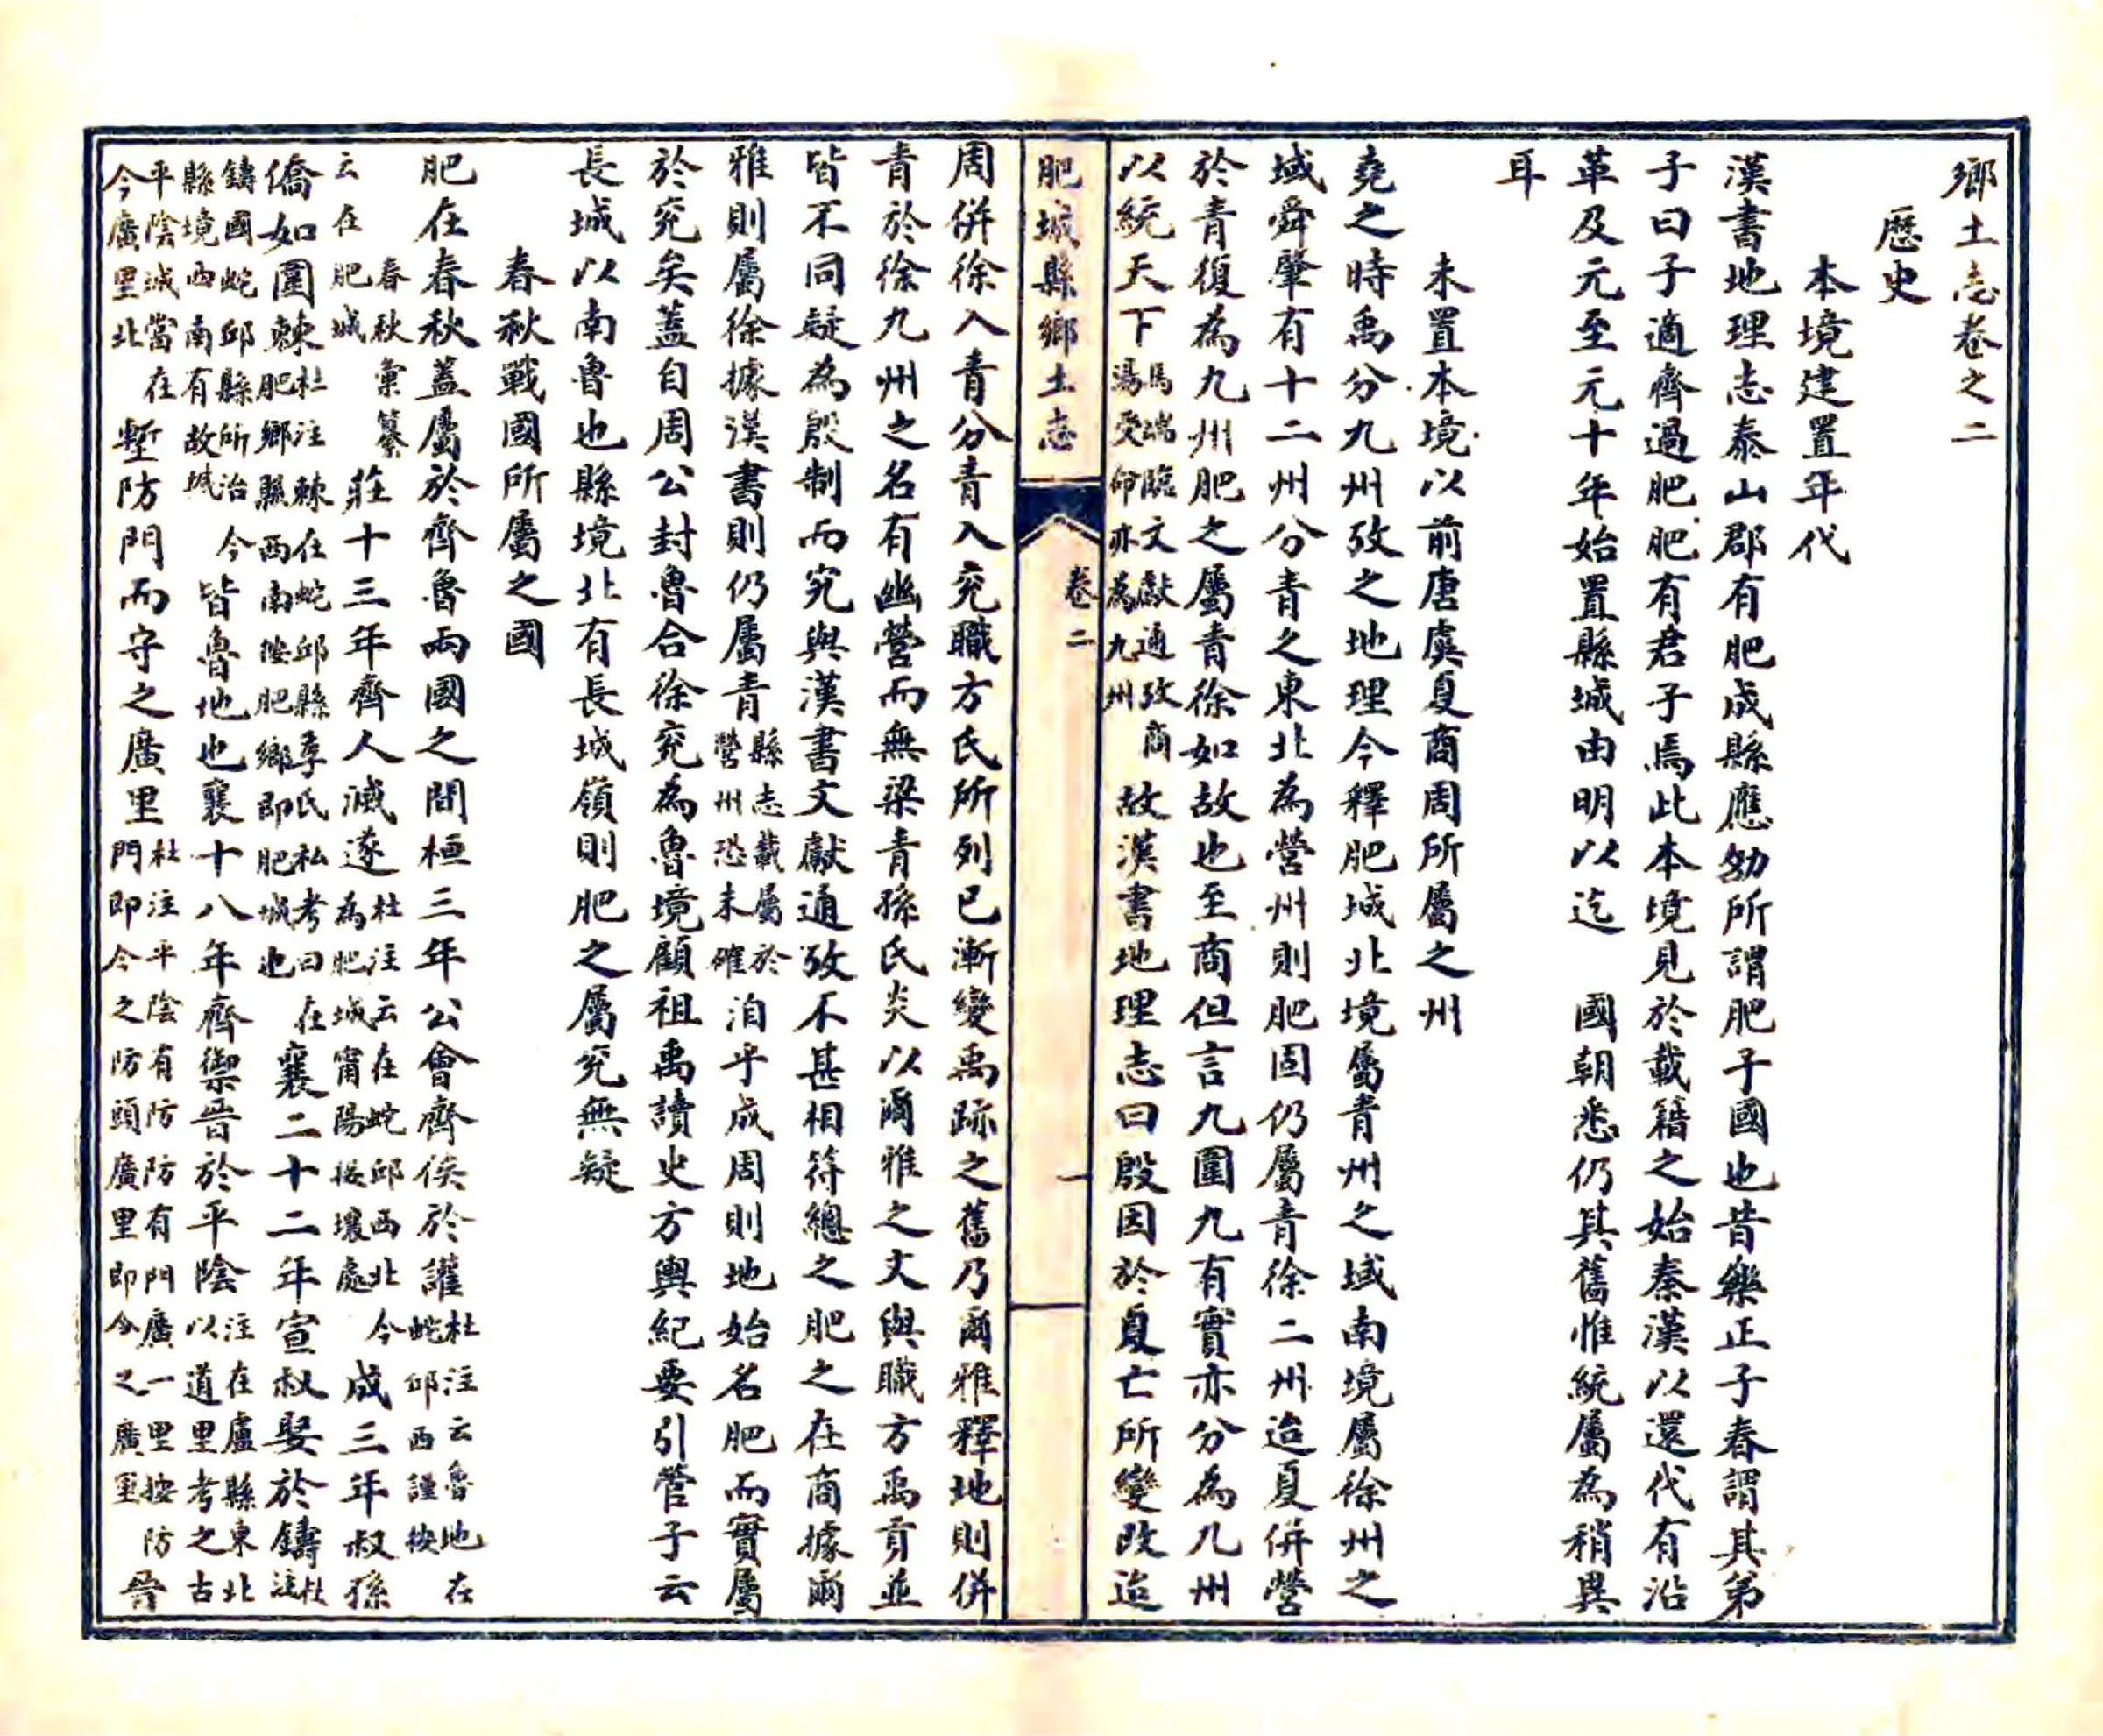 鄉土志卷之二
歷史
本境建置年代
漢書地理志泰山郡有肥成縣應劭所謂肥子國也昔樂正子春謂其弟
子曰子適齊過肥肥有君子焉此本境見於載籍之始秦漢以還代有沿
革及元至元十年始置縣城由明以迄　國朝悉仍其舊惟統屬為稍異
耳
未置本境以前唐虞夏商周所屬之州
堯之時禹分九州攷之地理今釋肥城北境屬青州之域南境屬徐州之
域舜肇有十二州分青之東北為營州則肥固仍屬青徐二州迨夏併營
於青復為九州肥之屬青徐如故也至商但言九圍九有實亦分為九州
以統天下馬端臨文獻通攷商湯受命亦為九州故漢書地理志曰殷因於夏亡所變改迨
肥城縣鄉土志　卷二　一
周併徐入青分青入兗職方氏所列已漸變禹跡之舊乃爾雅釋地則併
青於徐九州之名有幽營而無梁青孫氏炎以爾雅之文與職方禹貢並
皆不同疑為殷制而究與漢書文獻通攷不甚相符總之肥之在商據爾
雅則屬徐據漢書則仍屬青縣志載屬於營州恐未確洎乎成周則地始名肥而實屬
於兗矣蓋自周公封魯合徐兗為魯境顧祖禹讀史方輿紀要引管子云
長城以南魯也縣境北有長城嶺則肥之屬兗無疑
春秋戰國所屬之國
肥在春秋蓋屬於齊魯兩國之間桓三年公會齊侯於讙杜注云魯地在蛇邱西讙
云在肥城春秋彙纂莊十三年齊人滅遂杜注云在蛇邱西北今為肥城甯陽接壤處成三年叔孫
僑如圍棘杜注棘在蛇邱縣季氏私考曰在肥鄉縣西南按肥鄉即肥城也襄二十二年宣叔娶於鑄杜注
鑄國蛇邱縣所治今縣境西南有故城皆魯地也襄十八年齊禦晉於平陰注在盧縣東北以道里考之古
平陰城當在今廣里北塹防門而守之廣里杜注平陰有防防有門廣一里按防門即今之防頭廣里即今之廣里晉